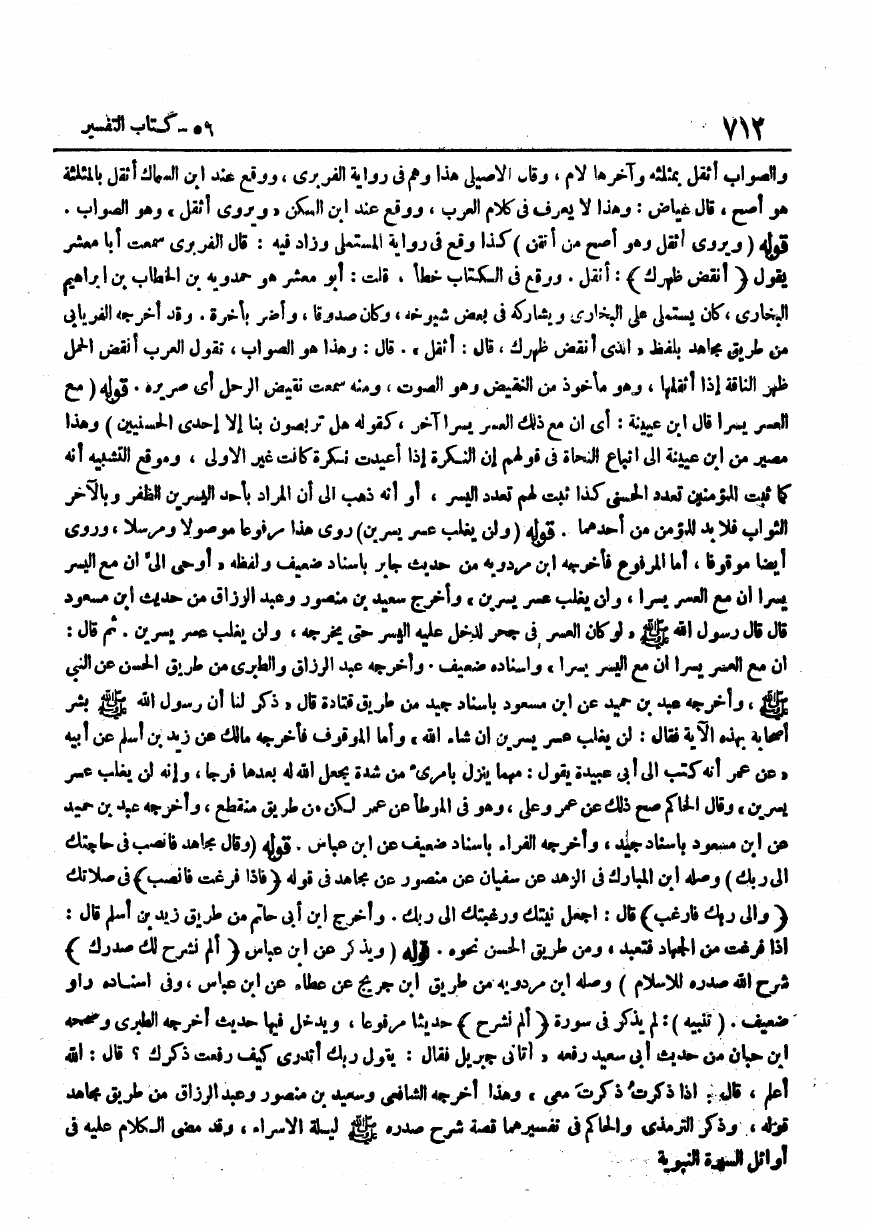 ٧١٢ ٥٩ - كتاب التفسير
والصواب أثقل بمثلثه وآخرها لام ، وقال الاصيلى هذا وهم فى رواية الفربرى ، ووقع عند ابن السماك أثقل بالمثلثة
هو أصح ، قال عياض : وهذا لا يعرف فى كلام العرب ، ووقع عند ابن السكن « ويروى أثقل » وهو الصواب .
قوله ( ويروى أثقل وهو أصح من أتقن ) كذا وقع فى رواية المستملى وزاد فيه : قال الفربرى سمعت أبا معشر
يقول ﴿ أنقض ظهرك ﴾ : أثقل . ووقع فى الكتاب خطأ . قلت : أبو معشر هو حمدويه بن الخطاب بن ابراهيم
البخارى ، كان يستملى على البخارى ويشاركه فى بعض شيوخه ، وكان صدوقا ، وأضر بأخرة . وقد أخرجه الفريابى
من طريق مجاهد بلفظ « الذى أنقض ظهرك ، قال : أثقل » . قال : وهذا هو الصواب ، تقول العرب أنقض الحمل
ظهر الناقة إذا أثقلها ، وهو مأخوذ من النقيض وهو الصوت ، ومنه سمعت نقيض الرحل أى صريره . قوله ( مع
العسر يسرا قال ابن عيينة : أى ان مع ذلك العسر يسرا آخر ، كقوله هل تربصون بنا إلا إحدى الحسنيين ) وهذا
مصير من ابن عيينة الى اتباع النحاة فى قولهم إن النكرة إذا أعيدت نكرة كانت غير الاولى ، وموقع التشبيه أنه
كما ثبت للمؤمنين تعدد الحسنى كذا ثبت لهم تعدد اليسر ، أو أنه ذهب الى أن المراد بأحد اليسرين الظفر وبالآخر
الثواب فلا بد للمؤمن من أحدهما . قوله ( ولن يغلب عسر يسرين ) روى هذا مرفوعا موصولا ومرسلا ، وروى
أيضا موقوفا ، أما المرفوع فأخرجه ابن مردويه من حديث جابر باسناد ضعيف ولفظه « أوحى الىّ ان مع اليسر
يسرا ان مع العسر يسرا ، ولن يغلب عسر يسرين » وأخرج سعيد بن منصور وعبد الرزاق من حديث ابن مسعود
قال قال رسول الله ﷺ « لو كان العسر فى جحر لدخل عليه اليسر حتى يخرجه ، ولن يغلب عسر يسرين . ثم قال :
ان مع العسر يسرا ان مع اليسر يسرا » واسناده ضعيف . وأخرجه عبد الرزاق والطبرى من طريق الحسن عن النبى
ﷺ ، وأخرجه عبد بن حميد عن ابن مسعود باسناد جيد من طريق قتادة قال « ذكر لنا أن رسول الله ﷺ بشر
أصحابه بهذه الآية فقال : لن يغلب عسر يسرين ان شاء الله » وأما الموقوف فأخرجه مالك عن زيد بن أسلم عن أبيه
« عن عمر أنه كتب الى أبى عبيدة يقول : مهما ينزل بامرىء من شدة يجعل الله له بعدها فرجا ، وإنه لن يغلب عسر
يسرين » وقال الحاكم صح ذلك عن عمر وعلى ، وهو فى الموطأ عن عمر لكن من طريق منقطع ، وأخرجه عبد بن حميد
عن ابن مسعود باسناد جيد ، وأخرجه الفراء باسناد ضعيف عن ابن عباس . قوله ( وقال مجاهد فانصب فى حاجتك
الى ربك ) وصله ابن المبارك فى الزهد عن سفيان عن منصور عن مجاهد فى قوله ﴿ فاذا فرغت فانصب ﴾ فى صلاتك
﴿ والى ربك فارغب ﴾ قال : اجعل نيتك ورغبتك الى ربك . وأخرج ابن أبى حاتم من طريق زيد بن أسلم قال :
اذا فرغت من الجهاد فتعبد ، ومن طريق الحسن نحوه . قوله ( ويذكر عن ابن عباس ﴿ ألم نشرح لك صدرك ﴾
شرح الله صدره للاسلام ) وصله ابن مردويه من طريق ابن جريج عن عطاء عن ابن عباس ، وفى اسناده راو
ضعيف . ( تنبيه ) : لم يذكر فى سورة ﴿ ألم نشرح ﴾ حديثا مرفوعا ، ويدخل فيها حديث أخرجه الطبرى وصححه
ابن حبان من حديث أبى سعيد رفعه « أتانى جبريل فقال : يقول ربك أتدرى كيف رفعت ذكرك ؟ قال : الله
أعلم ، قال : اذا ذكرتُ ذكرتَ معى » وهذا أخرجه الشافعى وسعيد بن منصور وعبد الرزاق من طريق مجاهد
قوله ، وذكر الترمذى والحاكم فى تفسيرهما قصة شرح صدره ﷺ ليلة الاسراء ، وقد مضى الكلام عليه فى
أوائل السيرة النبوية